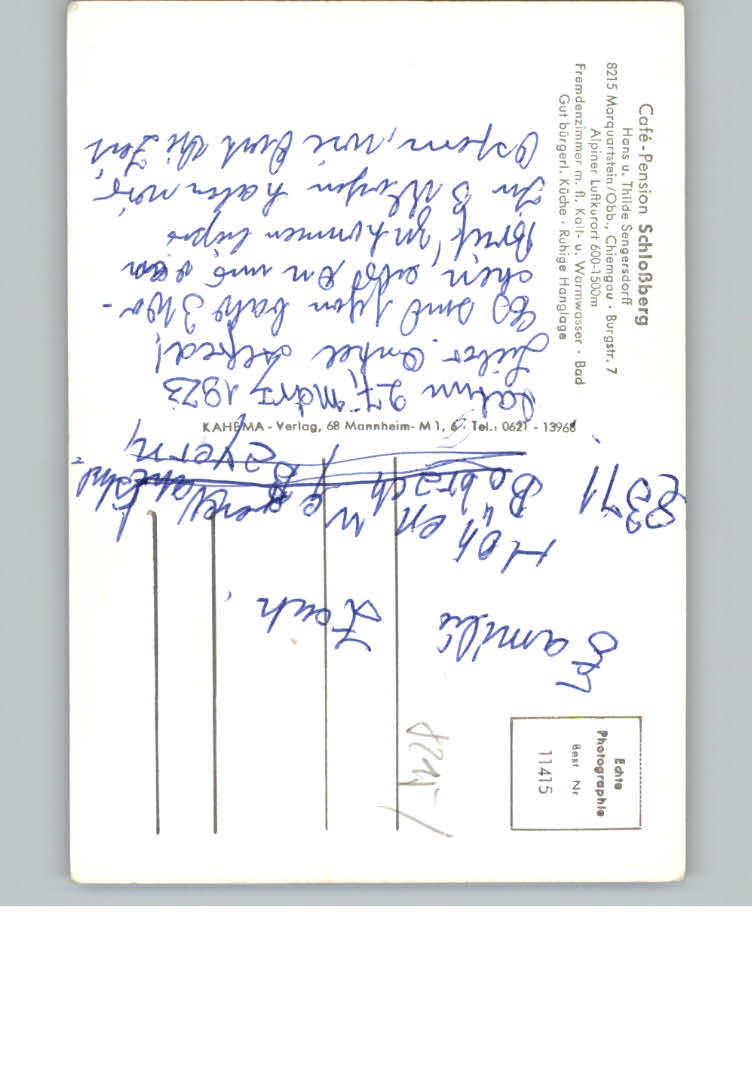 Café-Pension Schloßberg
Hans u. Thilde Sengersdorff
8215 Marquartstein/Obb., Chiemgau · Burgstr. 7
Alpiner Luftkurort 600-1500m
Fremdenzimmer m. fl. Kalt- u. Warmwasser · Bad
Gut bürgerl. Küche · Ruhige Hanglage
KAHEMA - Verlag, 68 Mannheim - M 1, 6 · Tel.: 0621 - 13968
Echte
Photographie
Best Nr
11415
27, März 1973
Lieber Onkel Alfred!
Es sind schon bald 3 Wo-
chen,
Brief, zu kommen
In 3 Wochen haben wir,
Ostern, wie die Zeit
Familie
Hohenwa
8371 Böbrach
Bayern,
8215